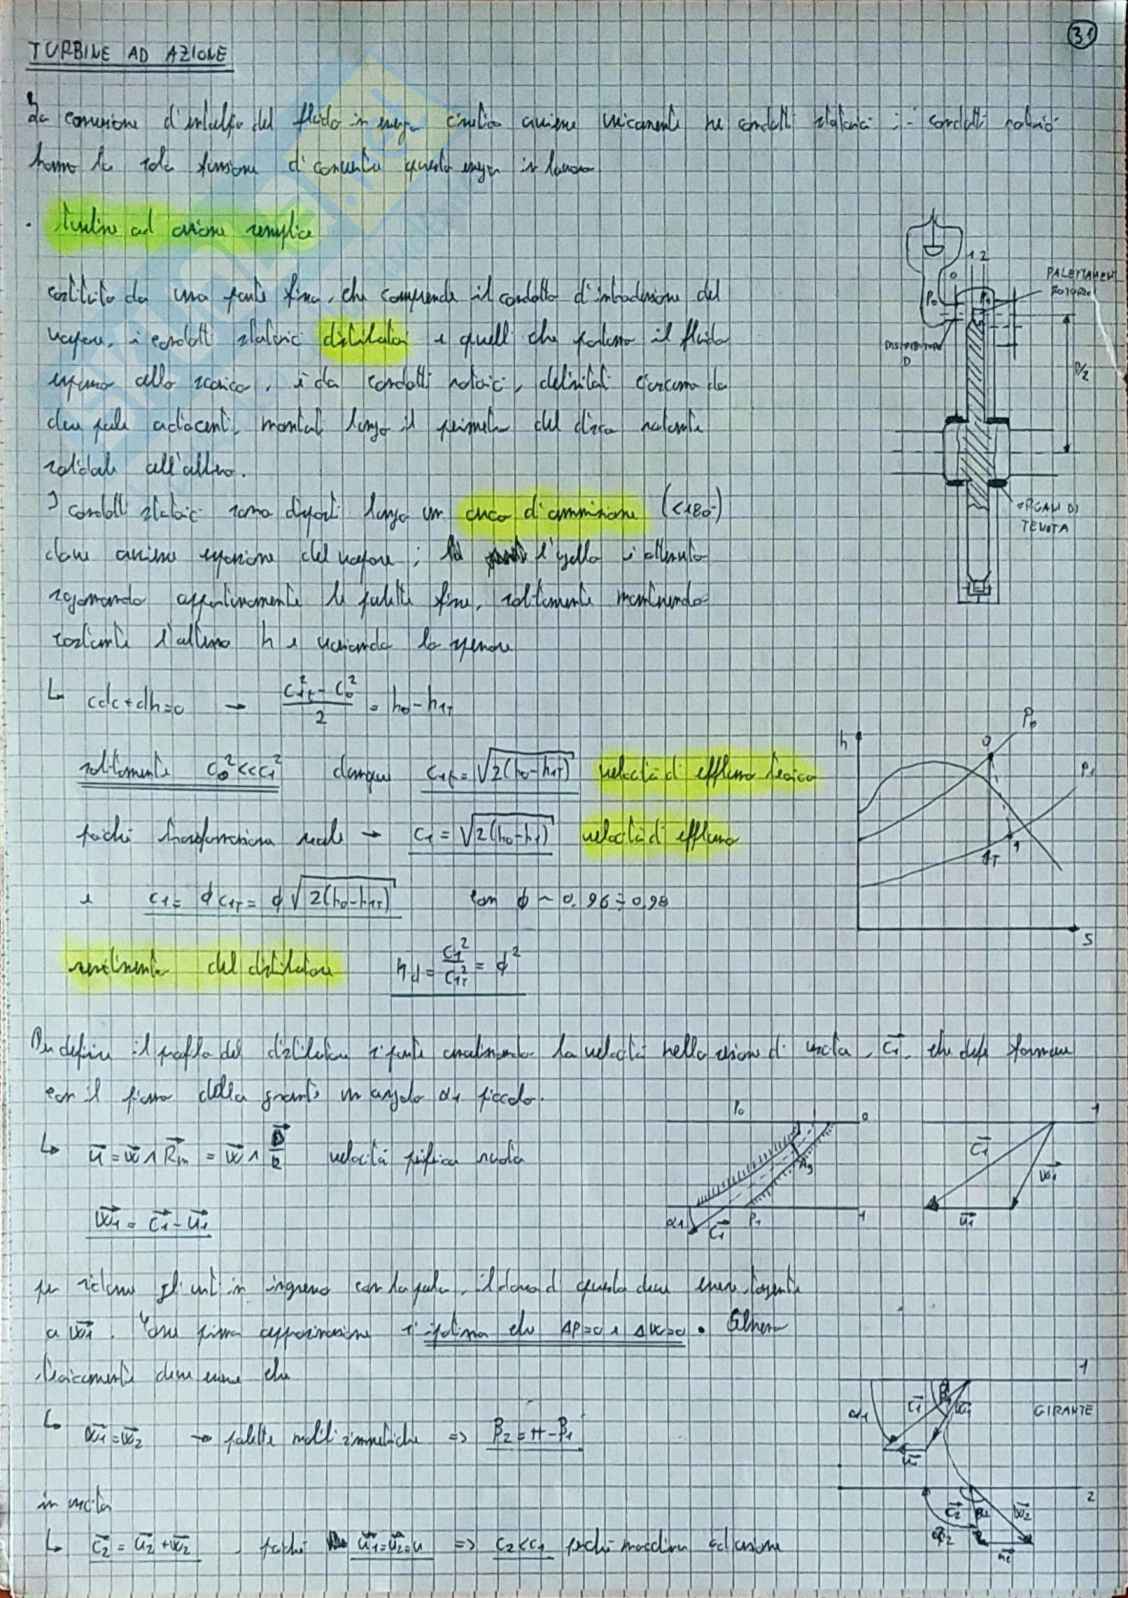 31
TURBINE AD AZIONE
La conversione d'entalpia del fluido in energia cinetica avviene unicamente ne condotti statorici ; i condotti rotorici
hanno la sola funzione di convertire questa energia in lavoro
· turbine ad azione semplice
costituita da una parte fissa, che comprende il condotto d'introduzione del
vapore, i condotti statorici distributori e quelli che portano il fluido
espanso allo scarico, e da condotti rotorici, delimitati ciascuno da
due pale adiacenti, montati lungo il perimetro del disco rotante
solidale all'albero.
I condotti statorici sono disposti lungo un arco d'ammissione (<180°)
dove avviene espansione del vapore ; l'ugello è ottenuto
sagomando opportunamente le palette fisse, solitamente mantenendo
costante l'altezza h e variando lo spessore
0 1 2
P0 P1
PALETTAMENTI ROTORICI
DISTRIBUTORE D
D/2
ORGANI DI TENUTA
↳ cdc+dh=0 → (c1T² - c0²)/2 = h0-h1T
solitamente c0²<<c1² dunque c1t=√2(h0-h1T) velocità di efflusso teorica
poiché trasformazione reale → c1=√2(h0-h1) velocità di efflusso
e c1= ϕ c1T= ϕ√2(h0-h1T) con ϕ ~ 0,96÷0,98
rendimento del distributore ηd= c1²/c1T² = ϕ²
h P0 0 P1 1 1T S
Per definire il profilo del distributore si parte dalla velocità nella sezione di uscita, c1, che deve formare
con il piano della girante un angolo α1 piccolo.
↳ u = w ∧ Rm = w ∧ D/2 velocità periferica ruota
w1 = c1 - u1
P0 0 Ag α1 c1 P1 1
1 c1 w1 u1
per ridurre gli urti in ingresso con la pala, il dorso di questa deve essere tangente
a w1. Come prima approssimazione s'ipotizza che ΔP=0 e ΔW=0. Allora
teoricamente deve essere che
↳ w1=w2 → palette mobili simmetriche => β2=π-β1
1 α1 c1 β1 w1 u1 GIRANTE
2 c2 β2 w2 α2 u2
in uscita
↳ c2 = u2 + w2 , poiché u1=u2=u => c2<c1 poiché macchina ad azione